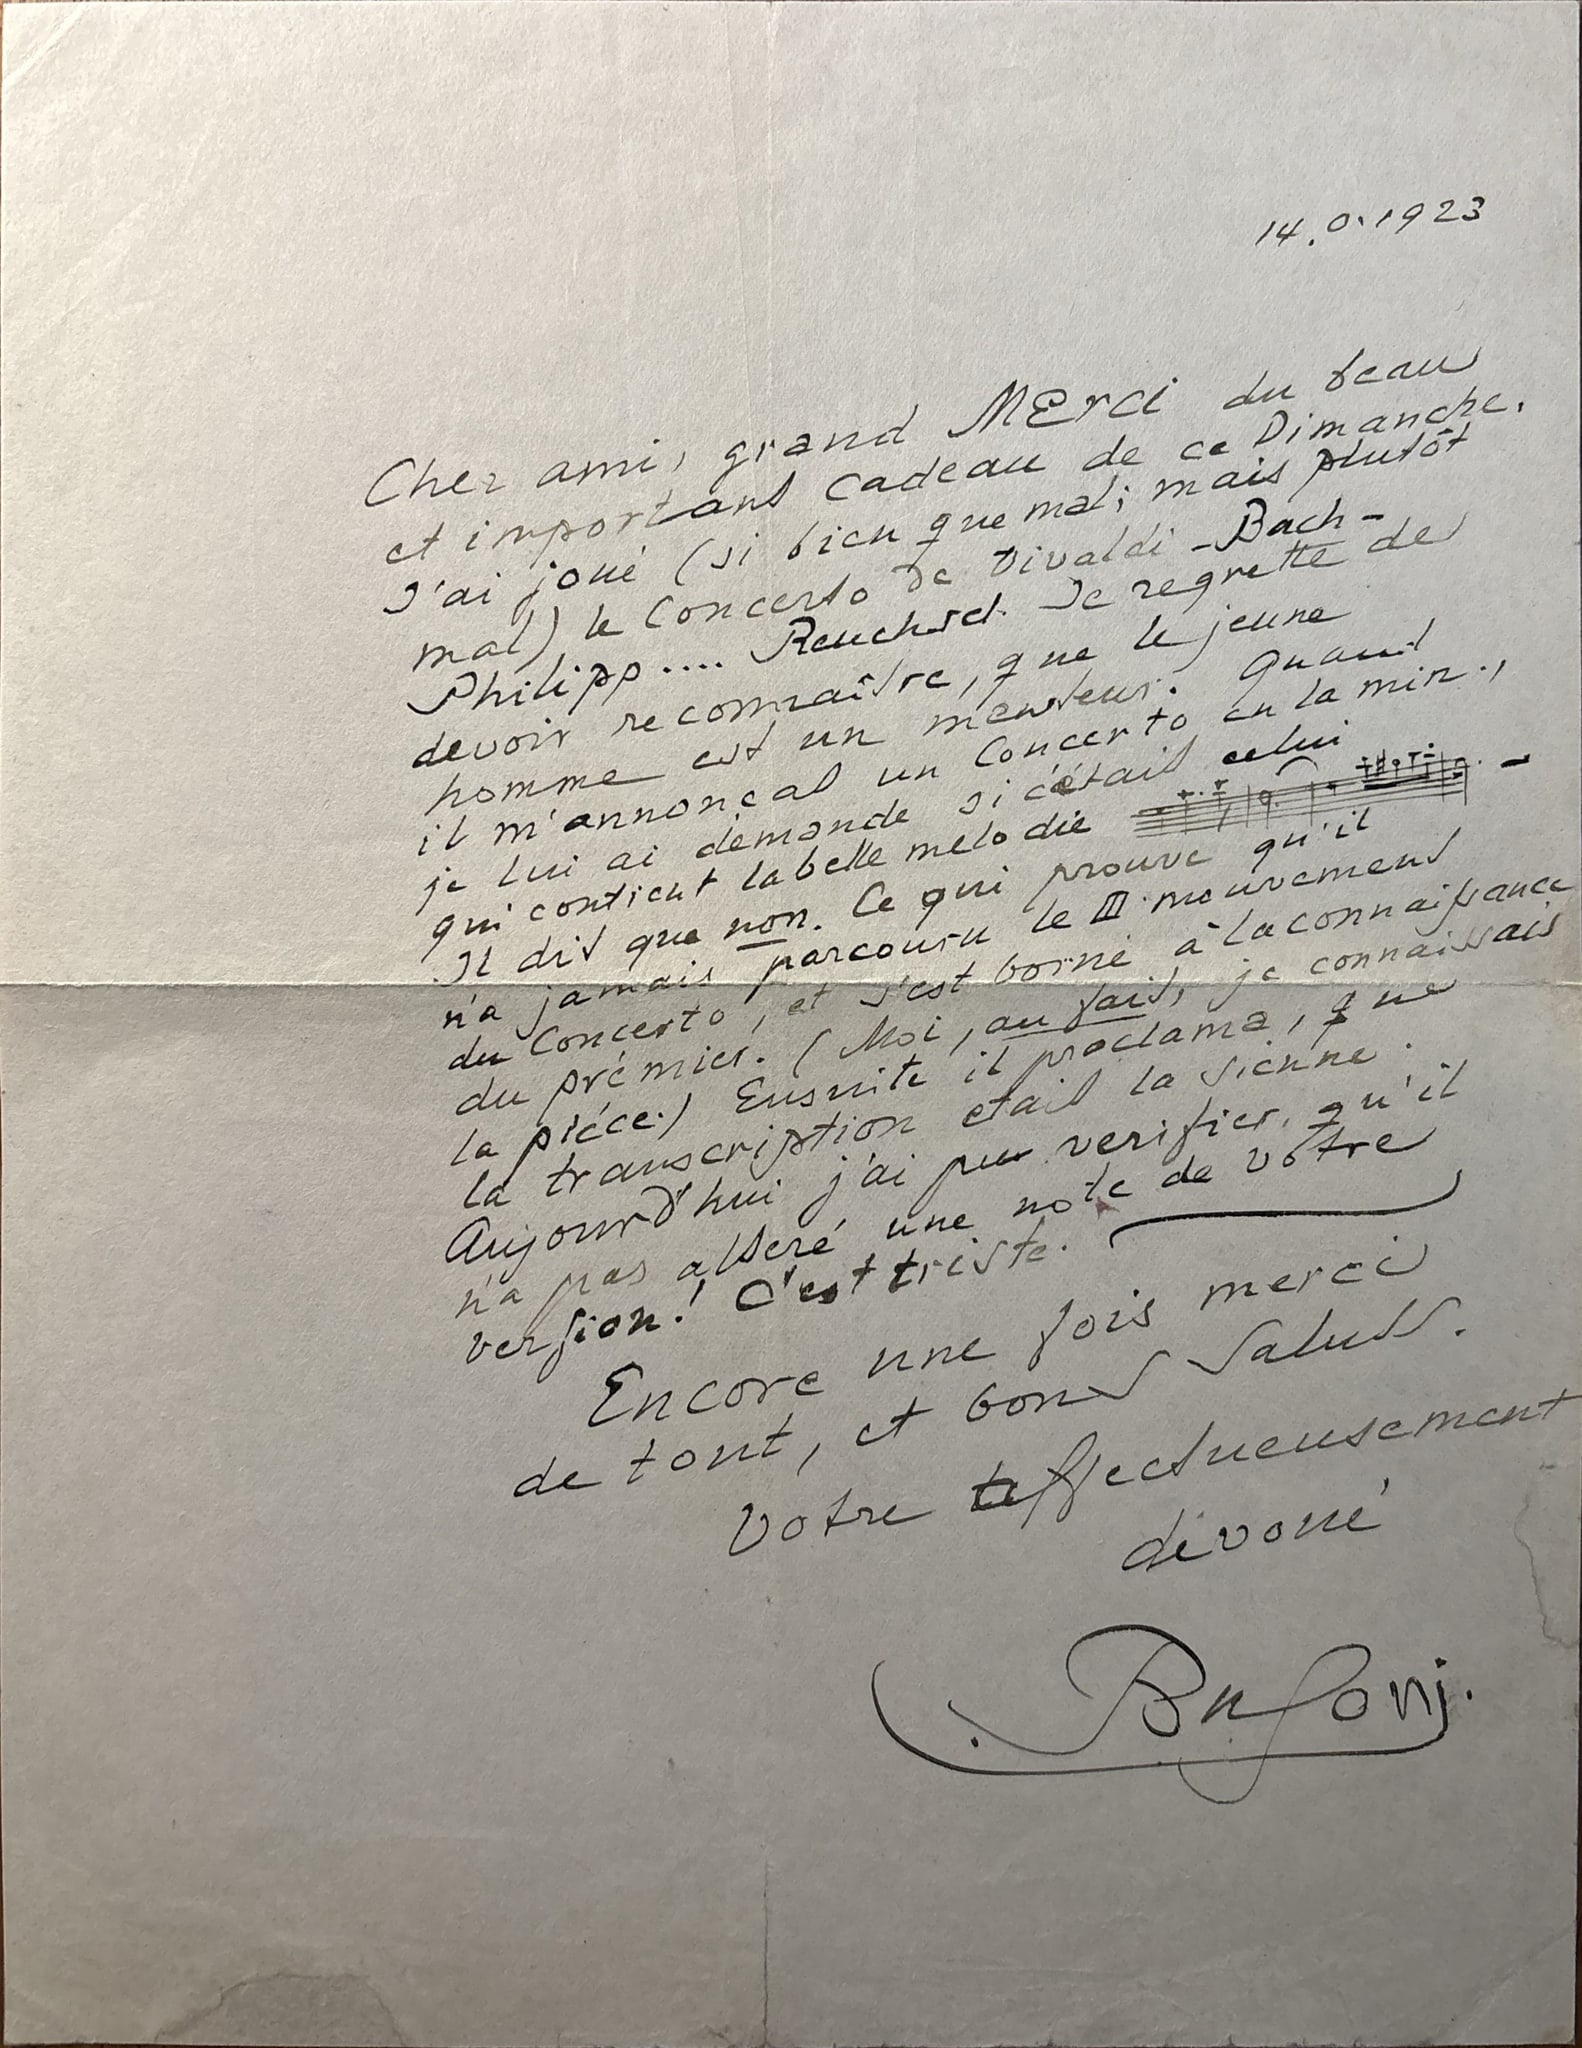 14.O.1923
Cher ami, grand MErci du beau
et important cadeau de ce Dimanche.
J'ai joué (si bien que mal; mais plutôt
mal) le Concerto de Vivaldi - Bach -
Philipp .... Reuchsel. Je regrette de
devoir reconnaître, que le jeune
homme est un menteur. Quand
il m'annonçat un Concerto en la min.,
je lui ai demandé si c'était celui
qui contient la belle mélodie -
Il dit que non. Ce qui prouve qu'il
n'a jamais parcouru le III. mouvement
du Concerto, et s'est borné à la connaissance
du prémier. (Moi, au fait, je connaissais
la piéce.) Ensuite il proclama, que
la transcription etait la sienne.
Aujourd'hui j'ai pu verifier, qu'il
n'a pas altéré une note de votre
version! C'est triste.
Encore une fois merci
de tout, et bons saluts.
Votre affectueusement
dévoué
Busoni.